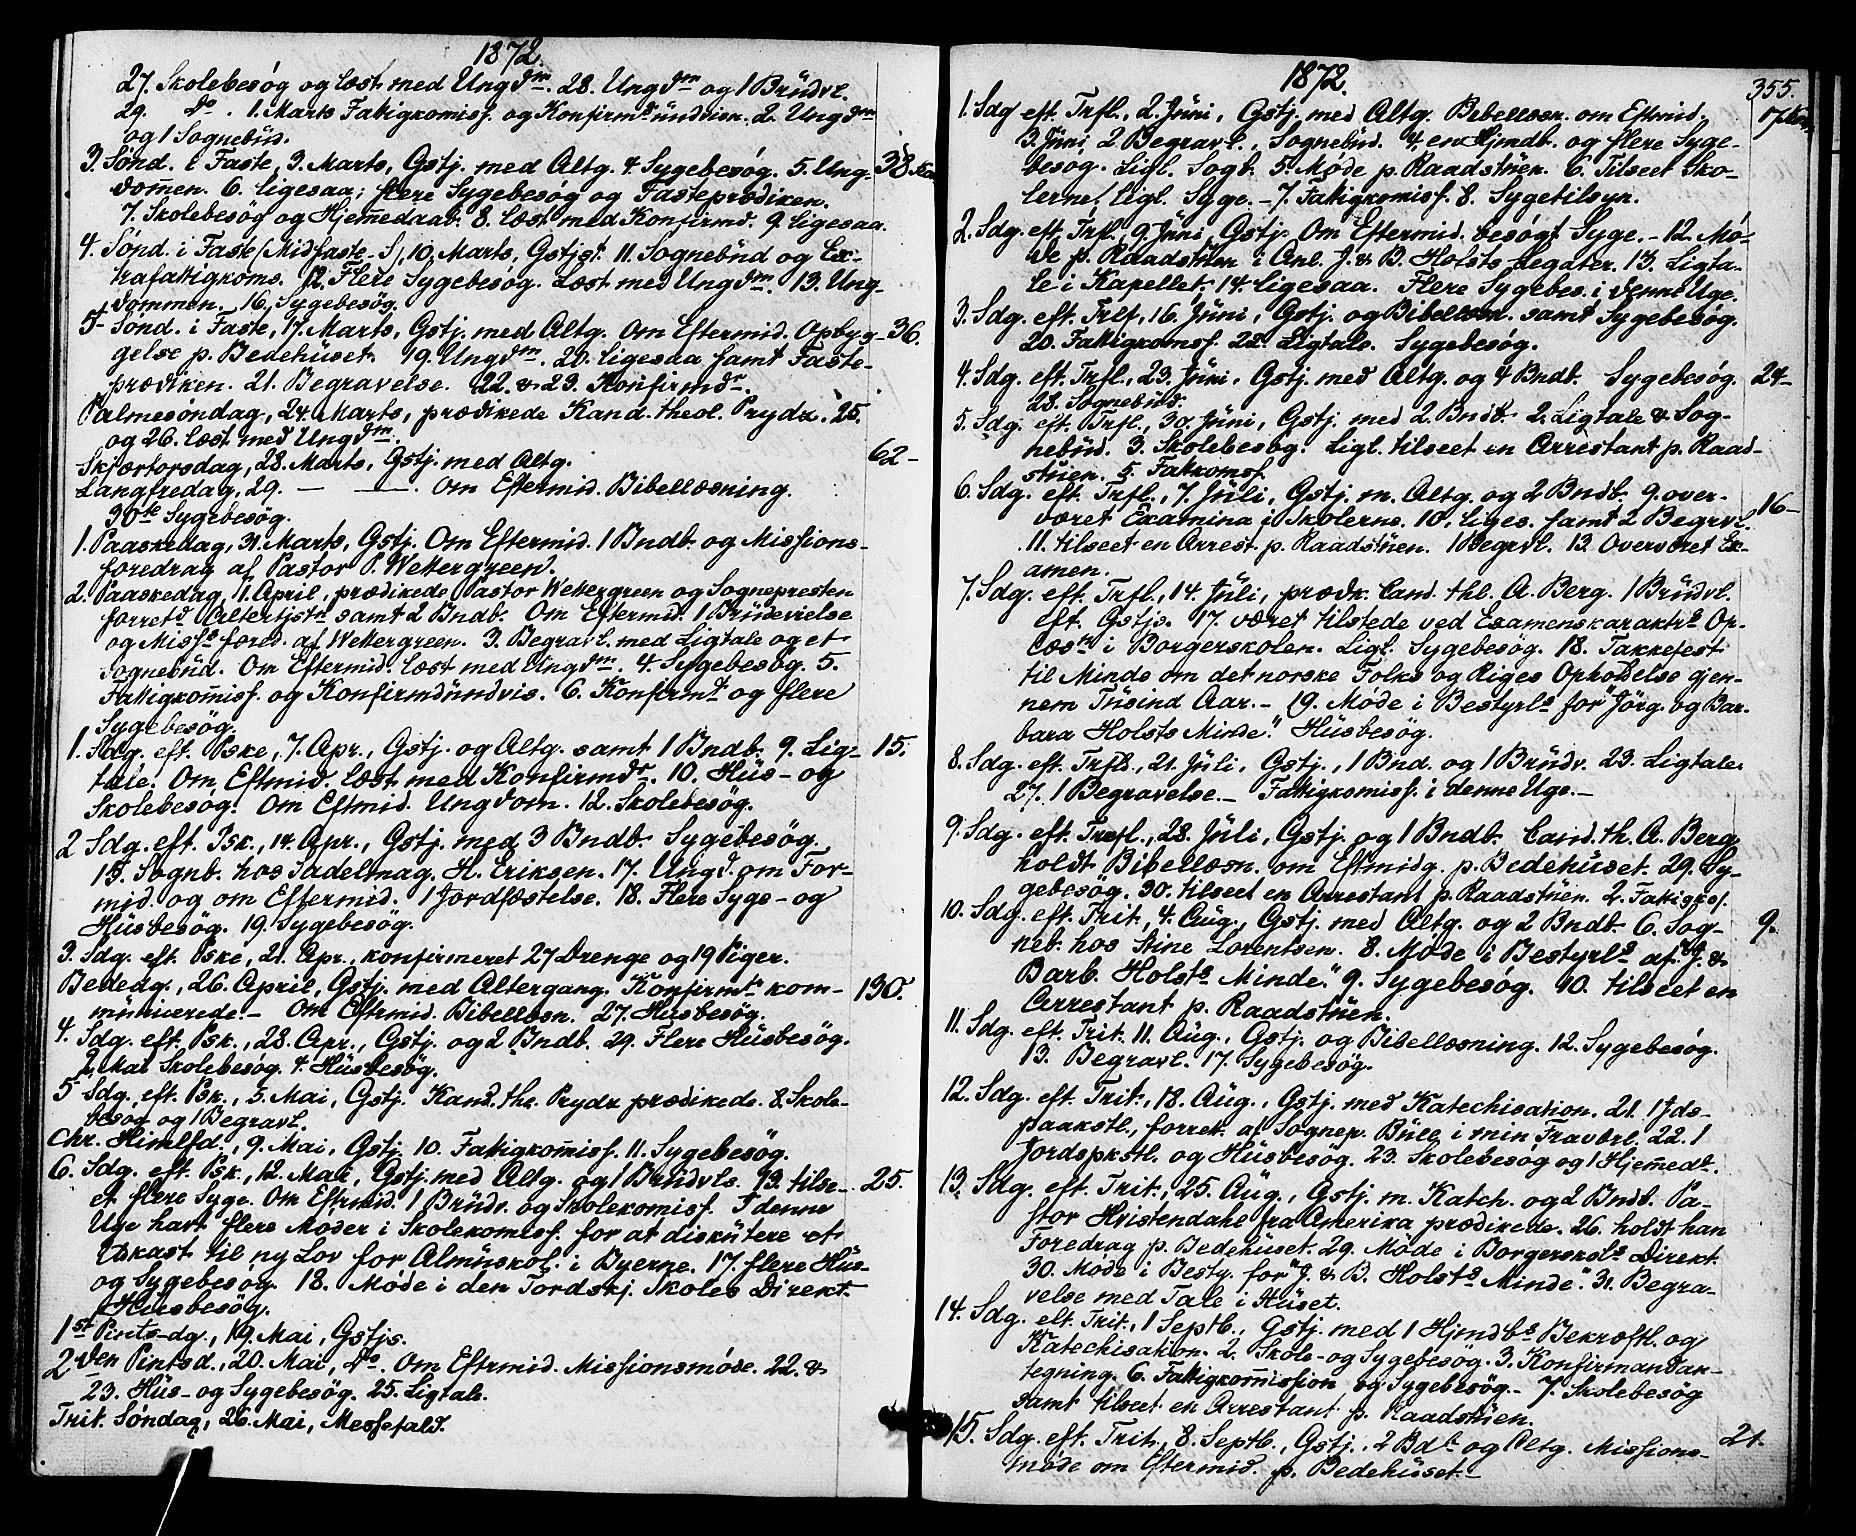 1872.
27. Skolebesög og læst med Ungdm. 28. Ungdm og 1 Brudvl.
29. Do. 1. Marts Fattigkomiss. og Konfirmdundvisn. 2. Ungdm
og 1 Sognebud.
3. Sönd. i Faste, 3. Marts, Gstj. med Altg. 4. Sygebesög. 5. Ung- 38
domen. 6. Ligesaa; flere Sygebesög og Fasteprædiken.
7. Skolebesög og Hjemedaab. 8. læst med Konfirmd. 9. ligesaa.
4. Sönd. i Faste (Midfaste-S), 10. Marts, Gstjst. 11. Sognebud og Ex-
trafattigkoms. 12. Flere Sygebesög. Læst med Ungdm. 13. Ung-
dommen. 16. Sygebesög.
5. Sönd. i Faste, 17. Marts, Gstj. med Altg. Om Eftermid. Opbyg- 36.
gelse p. Bedehuset. 19. Ungdm. 20. ligesaa samt Faste-
prædiken. 21. Begravelse. 22. & 23. Konfirmdr.
Palmesöndag, 24. Marts, prædikede Kand. theol. Prydz. 25.
og 26. læst med Ungdm.
Skjærtorsdag, 28. Marts, Gstj. med Altg. 62-
Langfredag, 29. — — . Om Eftermid. Bibellæsning.
30te Sygebesög.
1. Paaskedag, 31. Marts, Gstj. Om Eftermid. 1 Bndb. og Missions-
foredrag af Pastor P. Wettergreen.
2. Paaskedag, 1. April, prædikede Pastor Wettergreen og Sognepresten
forretd Altertjstn samt 2 Bndb. Om Eftermid. 1 Brudevielse
og Misss fored. af Wettergreen. 3. Begravl. med Ligtale og et
Sognebud. Om Eftermid. læst med Ungdm. 4. Sygebesög. 5.
Fattigkomiss. og Konfirmdundvis. 6. Konfirmt og flere
Sygebesög.
1. Sdg. eft. Pske, 7. Apr., Gstj. og Altg. samt 1 Bndb. 9. Lig- 15.
tale. Om Eftmid. læst med Konfirmdr. 10. Hus- og
Skolebesög. Om Eftmid. Ungdom. 12. Skolebesög.
2 Sdg. eft. Psk., 14. Apr., Gstj. med 3 Bndb. Sygebesög
15. Sognb. hos Sadelmag. H. Eriksen. 17. Ungd. om For-
mid. og om Eftermid. 1 Jordfæstelse. 18. Flere Syge- og
Husbesög. 19. Sygebesög.
3. Sdg. eft. Pske, 21. Apr., konfirmeret 27 Drenge og 19 Piger.
Bededg., 26. April, Gstj. med Altergang. Konfirmte kom- 130.
municerede.- Om Eftrmid. Bibellæsn. 27. Husbesög.
4. Sdg. eft. Psk., 28. Apr., Gstj. og 2 Bndb. 29. Flere Husbesög.
2. Mai Skolebesög. 4. Husbesög.
5 Sdg. eft. Psk., 5. Mai, Gstj. Kand. the. Prydz prædikede. 8. Skole-
besög og 1 Begravl.
Chr. Himlfd., 9. Mai, Gstj. 10. Fattigkomiss. 11. Sygebesög.
6. Sdg. eft. Psk., 12. Mai, Gstj. med Altg. og 1 Brudvls. 13. tilse- 25.
et flere Syge. Om Eftrmid. 1 Brudv. og Skolekomiss. I denne
Uge havt flere Möder i Skolekomiss. for at diskutere et
Udkast til ny Lov for Almuskol. i Byerne. 17. flere Hus-
og Sygebesög. 18. Möde i den Tordskj. Skoles Direkt.
Husbesög.
1st Pints-dg., 19. Mai, Gstjs.
2den Pintsd., 20. Mai, Do. Om Eftrmid. Missionsmöde. 22. &
23. Hus- og Sygebesög. 25. Ligtale.
Trit. Söndag, 26. Mai, Messefald.
1872. 355.
1. Sdg eft. Trfl., 2. Juni, Gstj. med Altg. Bibellæsn. om Eftmid.
3. Juni, 2 Begravl., Sognebud. 4. en Hjmdb. og flere Syge-
besög. Ligl. Sogb. 5. Möde p. Raadstuen. 6. Tilseet Sko-
lerne, ligl. Syge. - 7. Fattigkomiss. 8. Sygetilsyn.
2. Sdg. eft. Trfl., 9. Juni, Gstj. Om Eftermid. besögt Syge. - 12. Mö-
de p. Raadstuen i Anl. J. & B. Holsts Legater. 13. Ligta-
le i Kapellet. 14. ligesaa. Flere Sygebes. i denne Uge.
3. Sdg. eft. Trlf, 16. Juni, Gstj. og Bibellæsn. samt Sygebesög.
20. Fattigkomss. 22. Ligtale. Sygebesög.
4. Sdg. eft. Trfl., 23. Juni, Gstj. med Altg. og 4 Bndb. Sygebesög. 24-
28. Sognebud.
5. Sdg. eft. Trfl., 30. Juni, Gstj. med 2. Bndb. 2. Ligtale & Sog-
nebud. 3. Skolebesög. Ligl. tilseet en Arrestant p. Raad-
stuen. 5. Fatkomss.
6. Sdg. eft. Trfl., 7. Juli, Gstj. m. Altg. og 2 Bndb. 9. over- 16-
været Examina i Skolerne. 10. liges. samt 2 Begrvl.
11. tilseet en Arrest. p. Raadstuen. 1 Begrvl. 13. Overværet Ex-
amen.
7. Sdg. eft. Trfl., 14. Juli, prædk. Cand. thl. A. Berg. 1 Brudvl.
eft. Gstjs. 17. været tilstede ved Examenskaraktrs Op-
læsn i Borgerskolen. Ligl. Sygebesög. 18. Takkefest
til Minde om det norske Folks og Riges Opholdelse gjen-
nem Tusind Aar. - 19. Möde i Bestyrls for "Jörg. og Bar-
bara Holsts Minde." Husbesög.
8. Sdg. eft. Trfld., 21. Juli, Gstj., 1 Bnd. og 1 Brudv. 23. Ligtale.
27. 1 Begravelse. - Fattigkomiss. i denne Uge. -
9. Sdg. eft. Trefl., 28. Juli, Gstj. og 1 Bndb. Cand. th. A. Berg
holdt Bibellæsn. om Eftmidg. p. Bedehuset. 29. Sy-
gebesög. 30. tilseet en Arrestant p. Raadstuen. 2.
10. Sdg. eft. Trit., 4. Aug., Gstj. med Altg. og 2 Bndb. 6. Sog- 9.
neb. hos Stine Lorentsen. 8. Möde i Bestyrls af "J. &
Barb. Holsts Minde." 9. Sygebesög. 10. tilseet en
Arrestant p. Raadstuen.
11. Sdg. eft. Trit. 11. Aug., Gstj. og Bibellæsning. 12. Sygebesög.
13. Begravl. 17. Sygebesög.
12. Sdg. eft. Trit., 18. Aug., Gstj. med Katechisation. 21. 1 Jds-
paakstl., forret. af Sognep. Bull i min Fraværl. 22. 1
Jordspkstl. og Husbesög. 23. Skolebesög og 1 Hjemedb.
13. Sdg. eft. Trit., 25. Aug., Gstj. m. Katch. og 2 Bndb. Pa-
stor Hvistendahl fra Amerika prædikede. 26. holdt han
Foredrag p. Bedehuset. 29. Möde i Borgerskols Direkt.
30. Möde i Besty. for "J. & B. Holsts Minde". 31. Begra-
velse med Tale i Huset.
14. Sdg. eft. Trit., 1 Septb., Gstj. med 1 Hjmdbs Bekræftl. og
Katechisation. 2. Skole- og Sygebesög. 3. Konfirmandan-
tegning. 6. Fattigkommission og Sygebesög. - 7. Skolebesög
samt tilseet en Arrestant p. Raadstuen.
15. Sdg. eft. Trit., 8. Septb., Gstj., 2 Bdb. og Altg. Missions- 21.
möde om Eftermid. p. Bedehuset.-